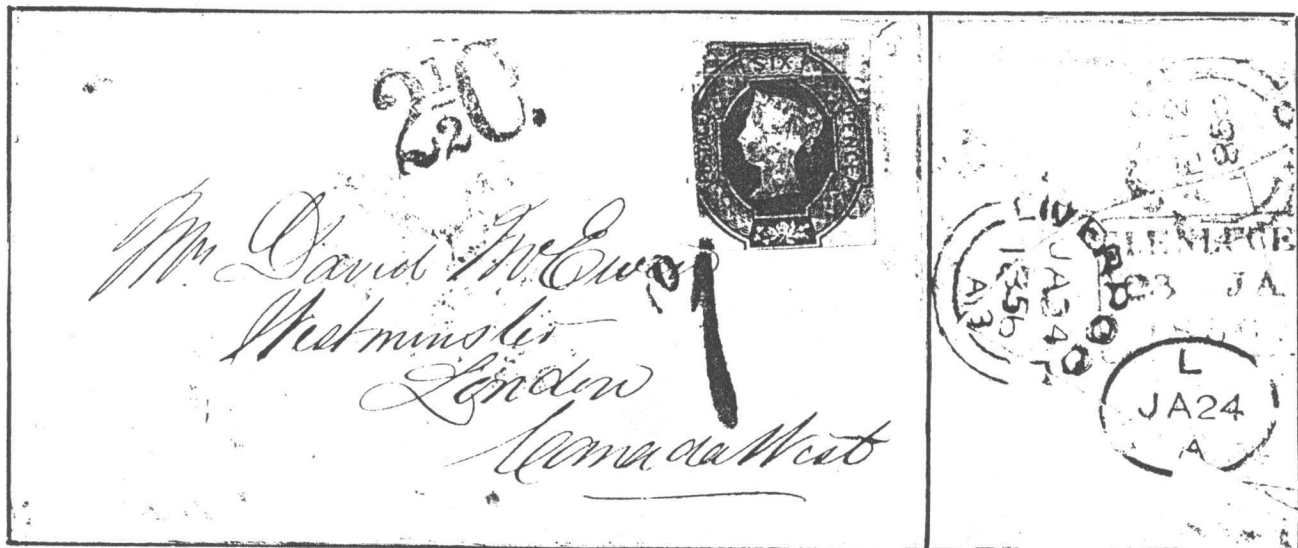 2½ C.
SIX PENCE
Mr David McEwen
Westminster
London
Canada West
1
LIVERPOOL
JA24
1856
A13
JA
L
JA24
A